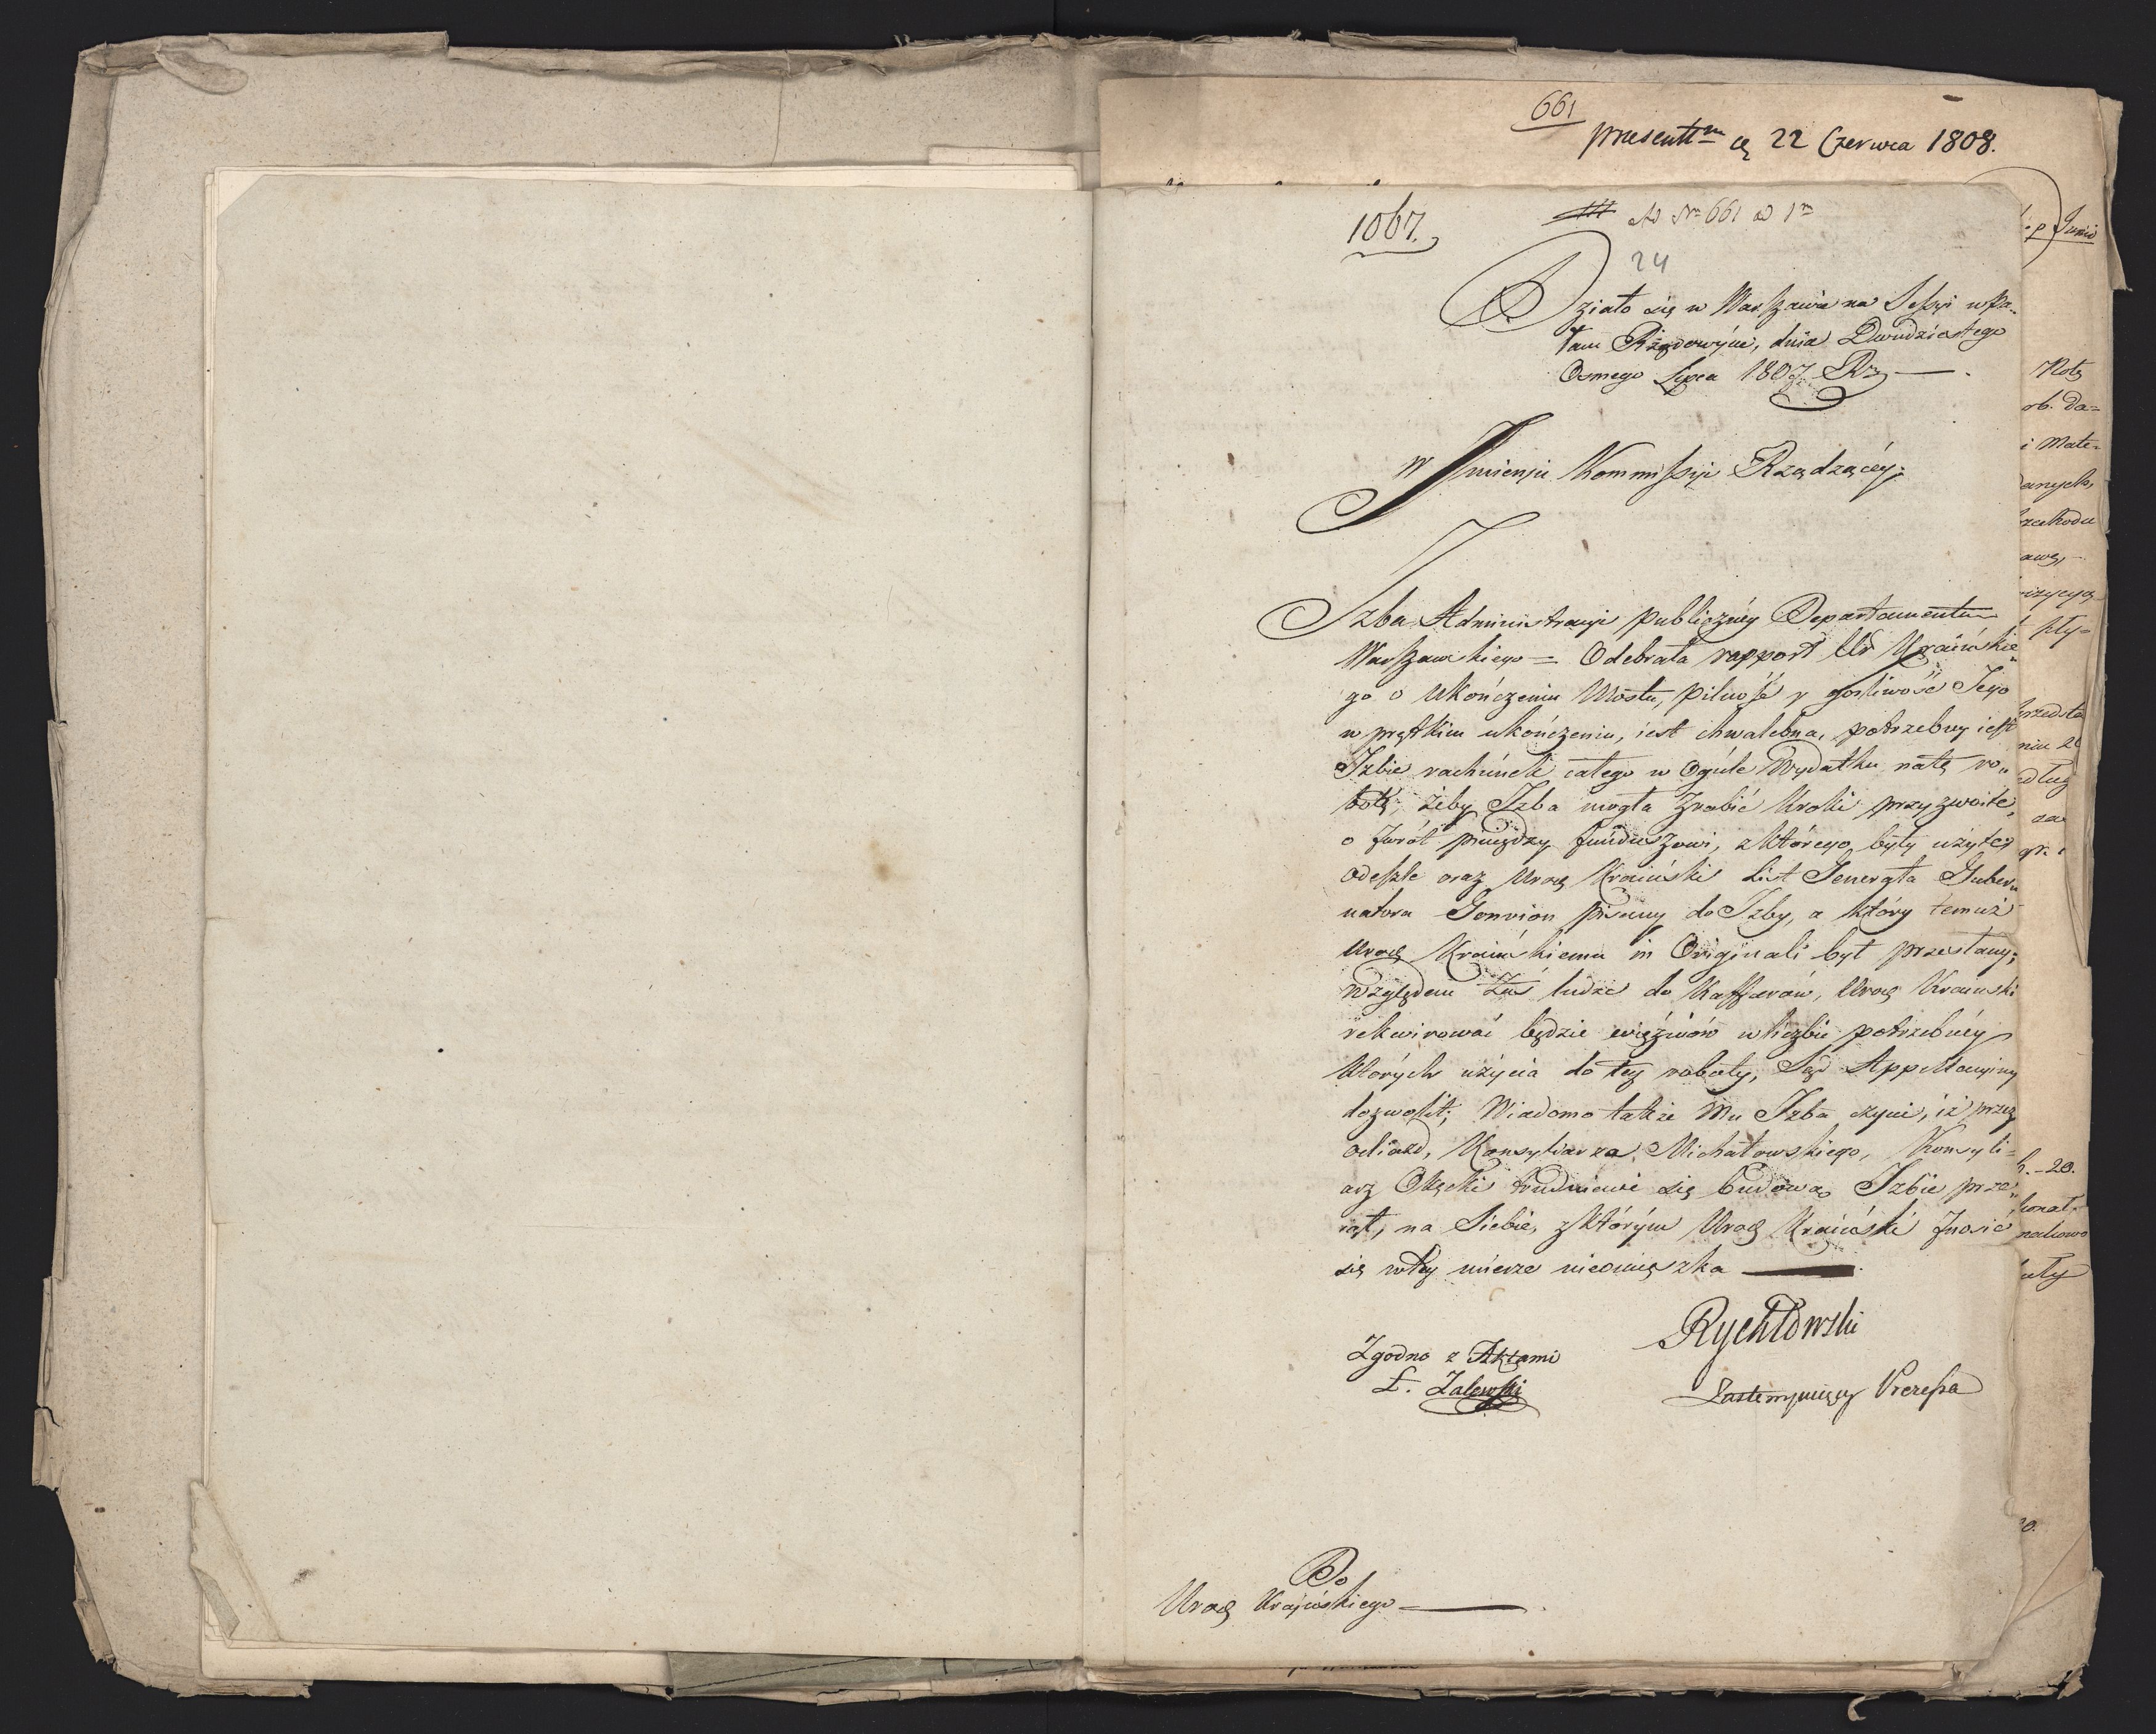 661
presentt<sup>m</sup> 22 Czerwca 1808.
1067.
Ad Nr 661 1<sup>m</sup>
24
Działo się w Warszawie na Sessyi w Pa-
łacu Rządowym, dnia Dwudziestego
Osmego Lipca 1807. R.
W Imieniu Kommissyi Rządzącey;
Izba Administracyi publiczney Departamentu
Warszawskiego = Odebrała rapport Ur Kraińskie„
go o ukończeniu Mostu, pilność y gorliwość Jego
w prętkim ukończeniu, iest chwalebna, potrzebny iest
Izbie rachunek całego w Ogule Wydatku na tę ro„
botę; żeby Izba mogła zrobić kroki przyzwoite,
o zwrót pieniędzy funduszowi, z którego były użyte;
odeszle oraz Uroz Kraiński List Jenerała Guber„
natora Gouvion pisany do Izby, a który temuż
Uroz Kraińskiemu in Originali był przesłany;
względem Zaś ludzi do Kaffarów, Uroz Kraiński
rekwirować będzie więźniów w liczbie potrzebney
których użycia do tey roboty, Sąd Appellacyiny
dozwolił; Wiadomo także Mu Izba czyni, iż przez
odiazd, Konsyliarza Michałowskiego, Konsyli=
arz Okęcki trudnienie się budową Izbie prze„
iął, na Siebie, z którym Uroz Kraiński znosić
się w tey mierze nieomięszka
Rychłowski
Zastempuiący Prezesa
Zgodno z Aktami
Ł. Zalewski
Do
Uroz Kraińskiego =
Junii
Notę
rb. Da=
i Mate=
danych,
awę,
pły=
rzedsta
niu 20
dług
za
gr.
h. - 20.
konał.
nakowo